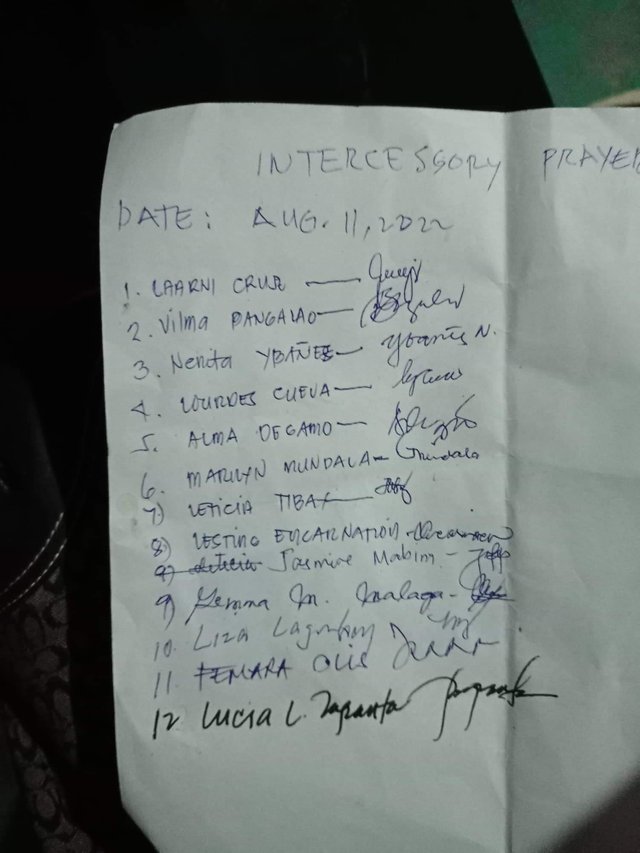 INTERCESSORY PRAYER
DATE: AUG. 11, 2022
1. LAARNI CRUZ
2. Vilma DANGALAO
3. Nenita YBAÑEZ — Ybañez N.
4. LOURDES CUEVA
5. ALMA DEGAMO
6. MARILYN MUNDALA - Mundala
7) LETICIA TIBAY
8) LESTING ENCARNATION
9) Leticia Jasmine Mabim
9) Gemma M. Malaga
10. Liza
11. FEMARA OLIS
12 Lucia L. Zapanta